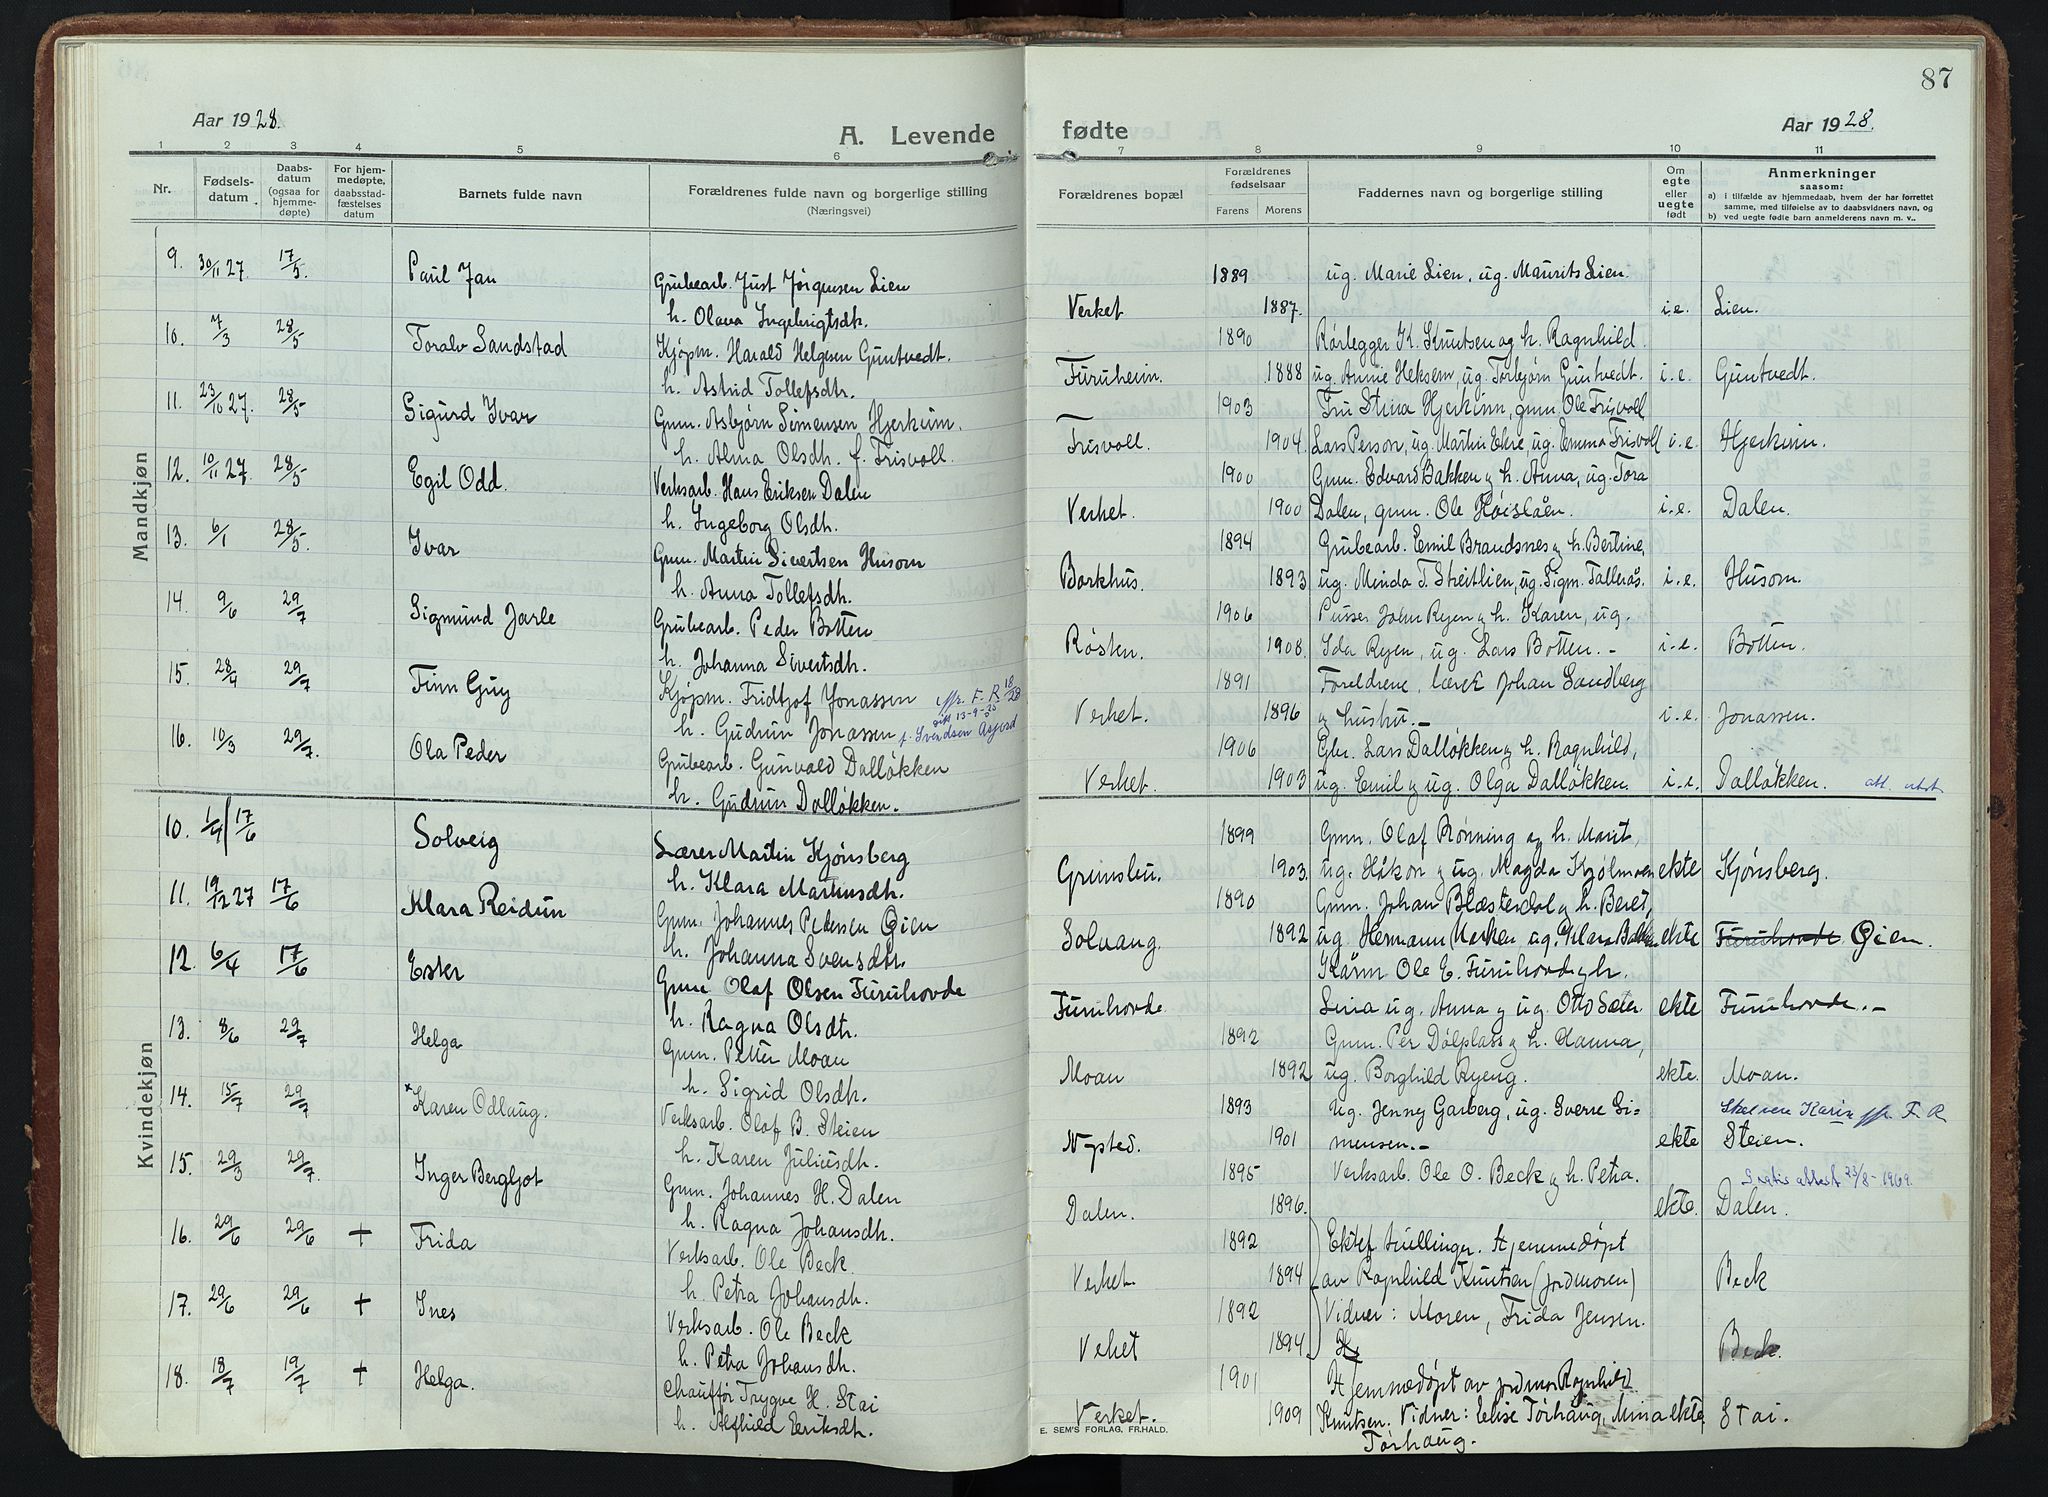 87
Aar 1928.
A. Levende fødte
Aar 1928.
1 2 3 4 5 6 7 8 9 10 11
Nr.
Fødsels-
datum.
Daabs-
datum
(ogsaa for
hjemme-
døpte)
For hjem-
medøpte,
daabsstad-
fæstelses
datum
Barnets fulde navn
Forældrenes fulde navn og borgerlige stilling
(Næringsvei)
Forældrenes bopæl
Forældrenes
fødselsaar
Farens Morens
Faddernes navn og borgerlige stilling
Om
egte
eller
uegte
født
Anmerkninger
saasom:
a) i tilfælde av hjemmedaab, hvem der har forrettet
samme, med tilføielse av to daabsvidners navn, og
b) ved uegte fødte barn anmelderens navn m. v..
Mandkjøn
9. 30/11 27. 17/5. Paul Jan
Grubearb. Just Jørgensen Lien 1889 ug. Marie Lien, ug. Maurits Lien.
h. Olava Ingebrigtsdh. Verket 1887. i.e. Lien.
10. 7/3 28/5 Toralv Sandstad
Kjøpm. Harald Helgesen Guntvedt. 1890 Rørlegger K. Knutsen og h. Ragnhild.
h. Astrid Tollefsdtr. Furuheim. 1888 ug. Annie Heksem, ug. Torbjørn Guntvedt. i.e. Guntvedt.
11. 23/10 27. 28/5 Sigurd Ivar
Gmn. Asbjørn Simensen Hjerkinn. 1903 Fru Stina Hjerkinn, gmn. Ole Trisvoll
h. Alma Olsdh. f. Trisvoll. Trisvoll. 1904. Lars Person, ug. Martin Ekre, ug. Emma Trisvoll i.e. Hjerkinn.
12. 10/11 27. 28/5 Egil Odd.
Verksarb. Hans Eriksen Dalen 1900 Gmn. Edvard Bakken og h. Anna, ug. Tora
h. Ingeborg Olsdh. Verket. 1900 Dalen, gmn. Ole Høislåen. i.e. Dalen.
13. 6/1 28/5. Ivar
Gmn. Martin Sivertsen Husom 1894 Grubearb. Emil Brandsnes og h. Bertine,
h. Anna Tollefsdh. Borkhus. 1893 ug. Minda T. Streitlien, ug. Sigm. Tallerås. i.e. Husom.
14. 9/6 29/7 Sigmund Jarle
Grubearb. Peder Botten 1906 Pusser John Ryen og h. Karen, ug.
h. Johanna Sivertsdh. Røsten. 1908. Ida Ryen, ug. Lars Botten. - i.e. Botten.
15. 28/4 29/7 Finn Guy
Kjøpm. Fridtjof Jonassen 1891 Foreldrene, lærer Johan Sandberg
h. Gudrun Jonassen f. Svendsen Verket. 1896 og hustru. - i.e. Jonassen.
16. 10/3 29/7. Ola Peder
Grubearb. Gunvald Dalløkken 1906 Gbr. Lars Dalløkken og h. Ragnhild,
h. Gudrun Dalløkken. Verket. 1903 ug. Emil og ug. Olga Dalløkken. i.e. Dalløkken. att. utst.
Kvindekjøn
10. 1/4 17/6 Solveig
Lærer Martin Kjønsberg 1899 Gmn. Olaf Rønning og h. Marit,
h. Klara Martinsdh. Grimsbu. 1903. ug. Håkon og ug. Magda Kjølmoen ekte Kjønsberg.
11. 19/12 27 17/6 Klara Reidun
Gmn. Johannes Pedersen Øien 1890 Gmn. Johan Blæsterdal og h. Beret,
h. Johanna Svensdtr. Solvang. 1892 ug. Hermann ekte Furuhovde Øien.
12. 6/4 17/6 Ester
Gmn Olaf Olsen Furuhovde Kårm Ole E. Furuhovde og h.
h. Ragna Olsdtr. Furuhovde. Lina ug. Anna og ug. Otto Sæter. ekte Furuhovde. -
13. 8/6 29/7 Helga
Gmn. Petter Moan 1892 Gmn. Per Dølplass og h. Hanna,
h. Sigrid Olsdh. Moan 1892 ug. Borghild Ryeng. ekte. Moan.
14. 15/7 29/7 x Karen Odlaug.
Verksarb. Olaf B. Steien 1893 Ug. Jenny Garberg, ug. Sverre Si= Skal være Karin jfr. F. R
h. Karen Juliusdh. Nysted. 1901 mensen. - ekte Steien.
15. 29/3 29/7. Inger Bergljot
Gmn. Johannes H. Dalen 1895 Verksarb. Ole O. Beck og h. Petra. Gratis attest 23/8-1969.
h. Ragna Johansdh. Dalen. 1896. ekte. Dalen.
16. 29/6 29/6 + Frida
Verksarb. Ole Beck. 1892 Ektef tvillinger. Hjemmedøpt
h. Petra Johansdh. Verket 1894 av Ragnhild Knutsen (jordmoren) Beck
17. 29/6 29/6 + Ines
Verksarb. Ole Beck 1892 Vidner: Moren, Frida Jensen.
h. Petra Johansdh. Veket 1894 Beck.
18. 18/7 19/7 + Helga.
Chauffør Trygve H. Stai 1901 Hjemmedøpt av jordmor Ragnhild
h. Alfhild Eriksdh. Verket. 1909 Knutsen. Vidner: Elise Tørhaug, Mina ekte Stai.
Tørhaug.
E. SEM'S FORLAG, FR.HALD.